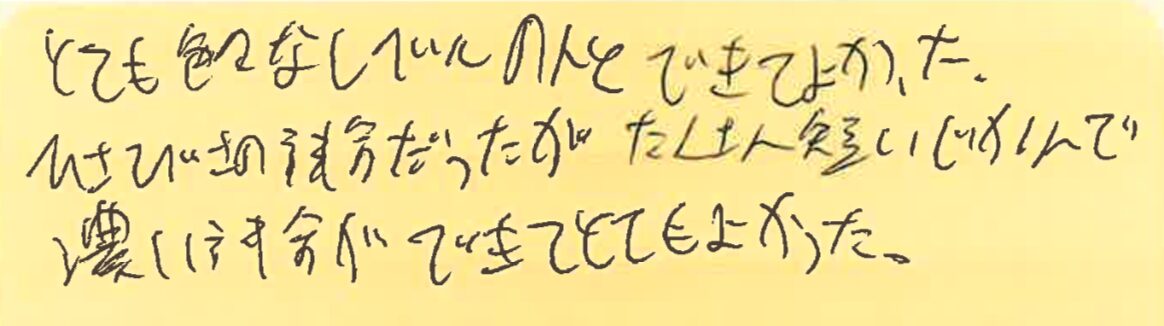 とても色々な の人とできてよかった。
ひさびさの試合だったがたくさん短いじかんで
濃い試合ができてとてもよかった。